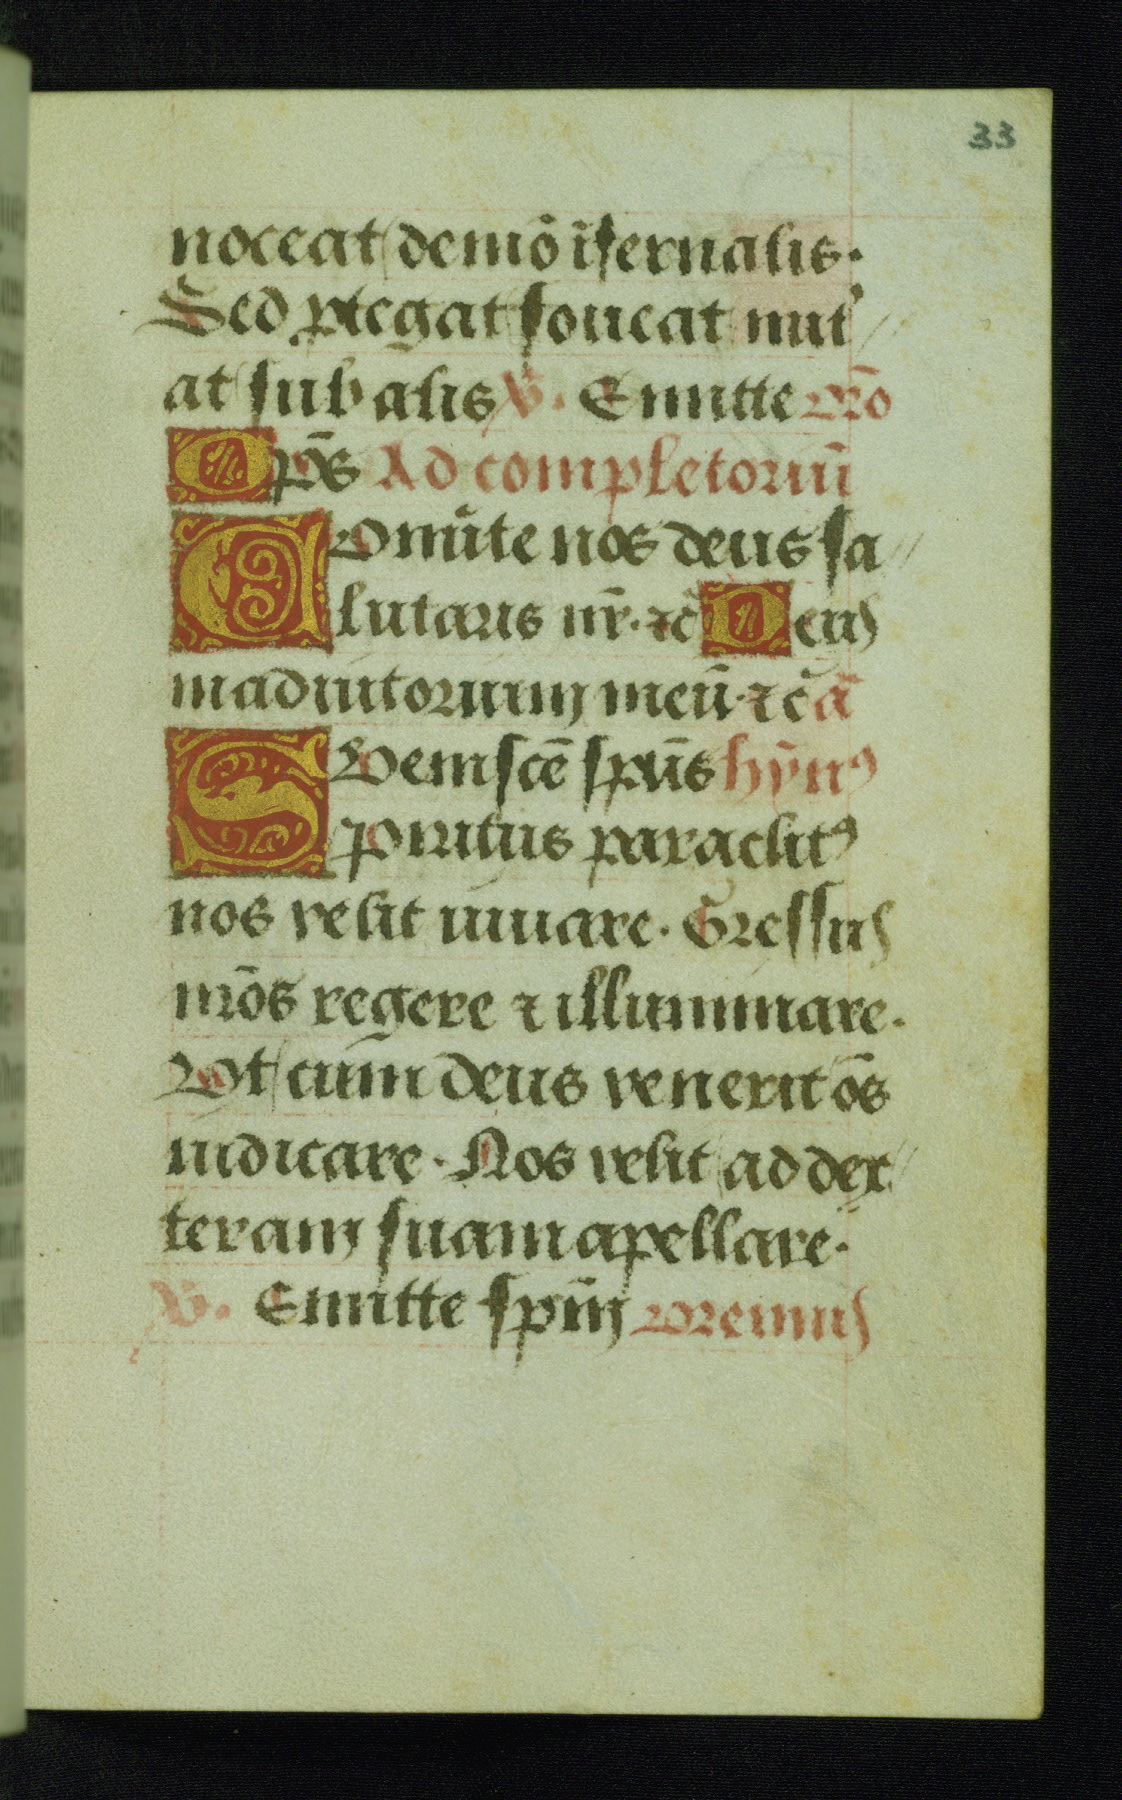 33
noceat demō īfernalis.
Sed ꝓtegat foueat nut
at sub ālis ℣. Emitte Oͬo
Oṗs Ad completoriū
Conūte nos deus sa
lutaris nr̄. ⁊c̄ Deus
in adiutorium meū. ⁊c̄ ā
Veni scē spūs hȳnꝰ
Spiritus paraclitꝰ
nos velit iuuare. Gressus
nrōs regere ⁊ illuminare.
Vt cum deus venerit ōs
iudicare. Nos velit ad dex
teram suam apellare.
℣. Emitte spm̄ Oremus